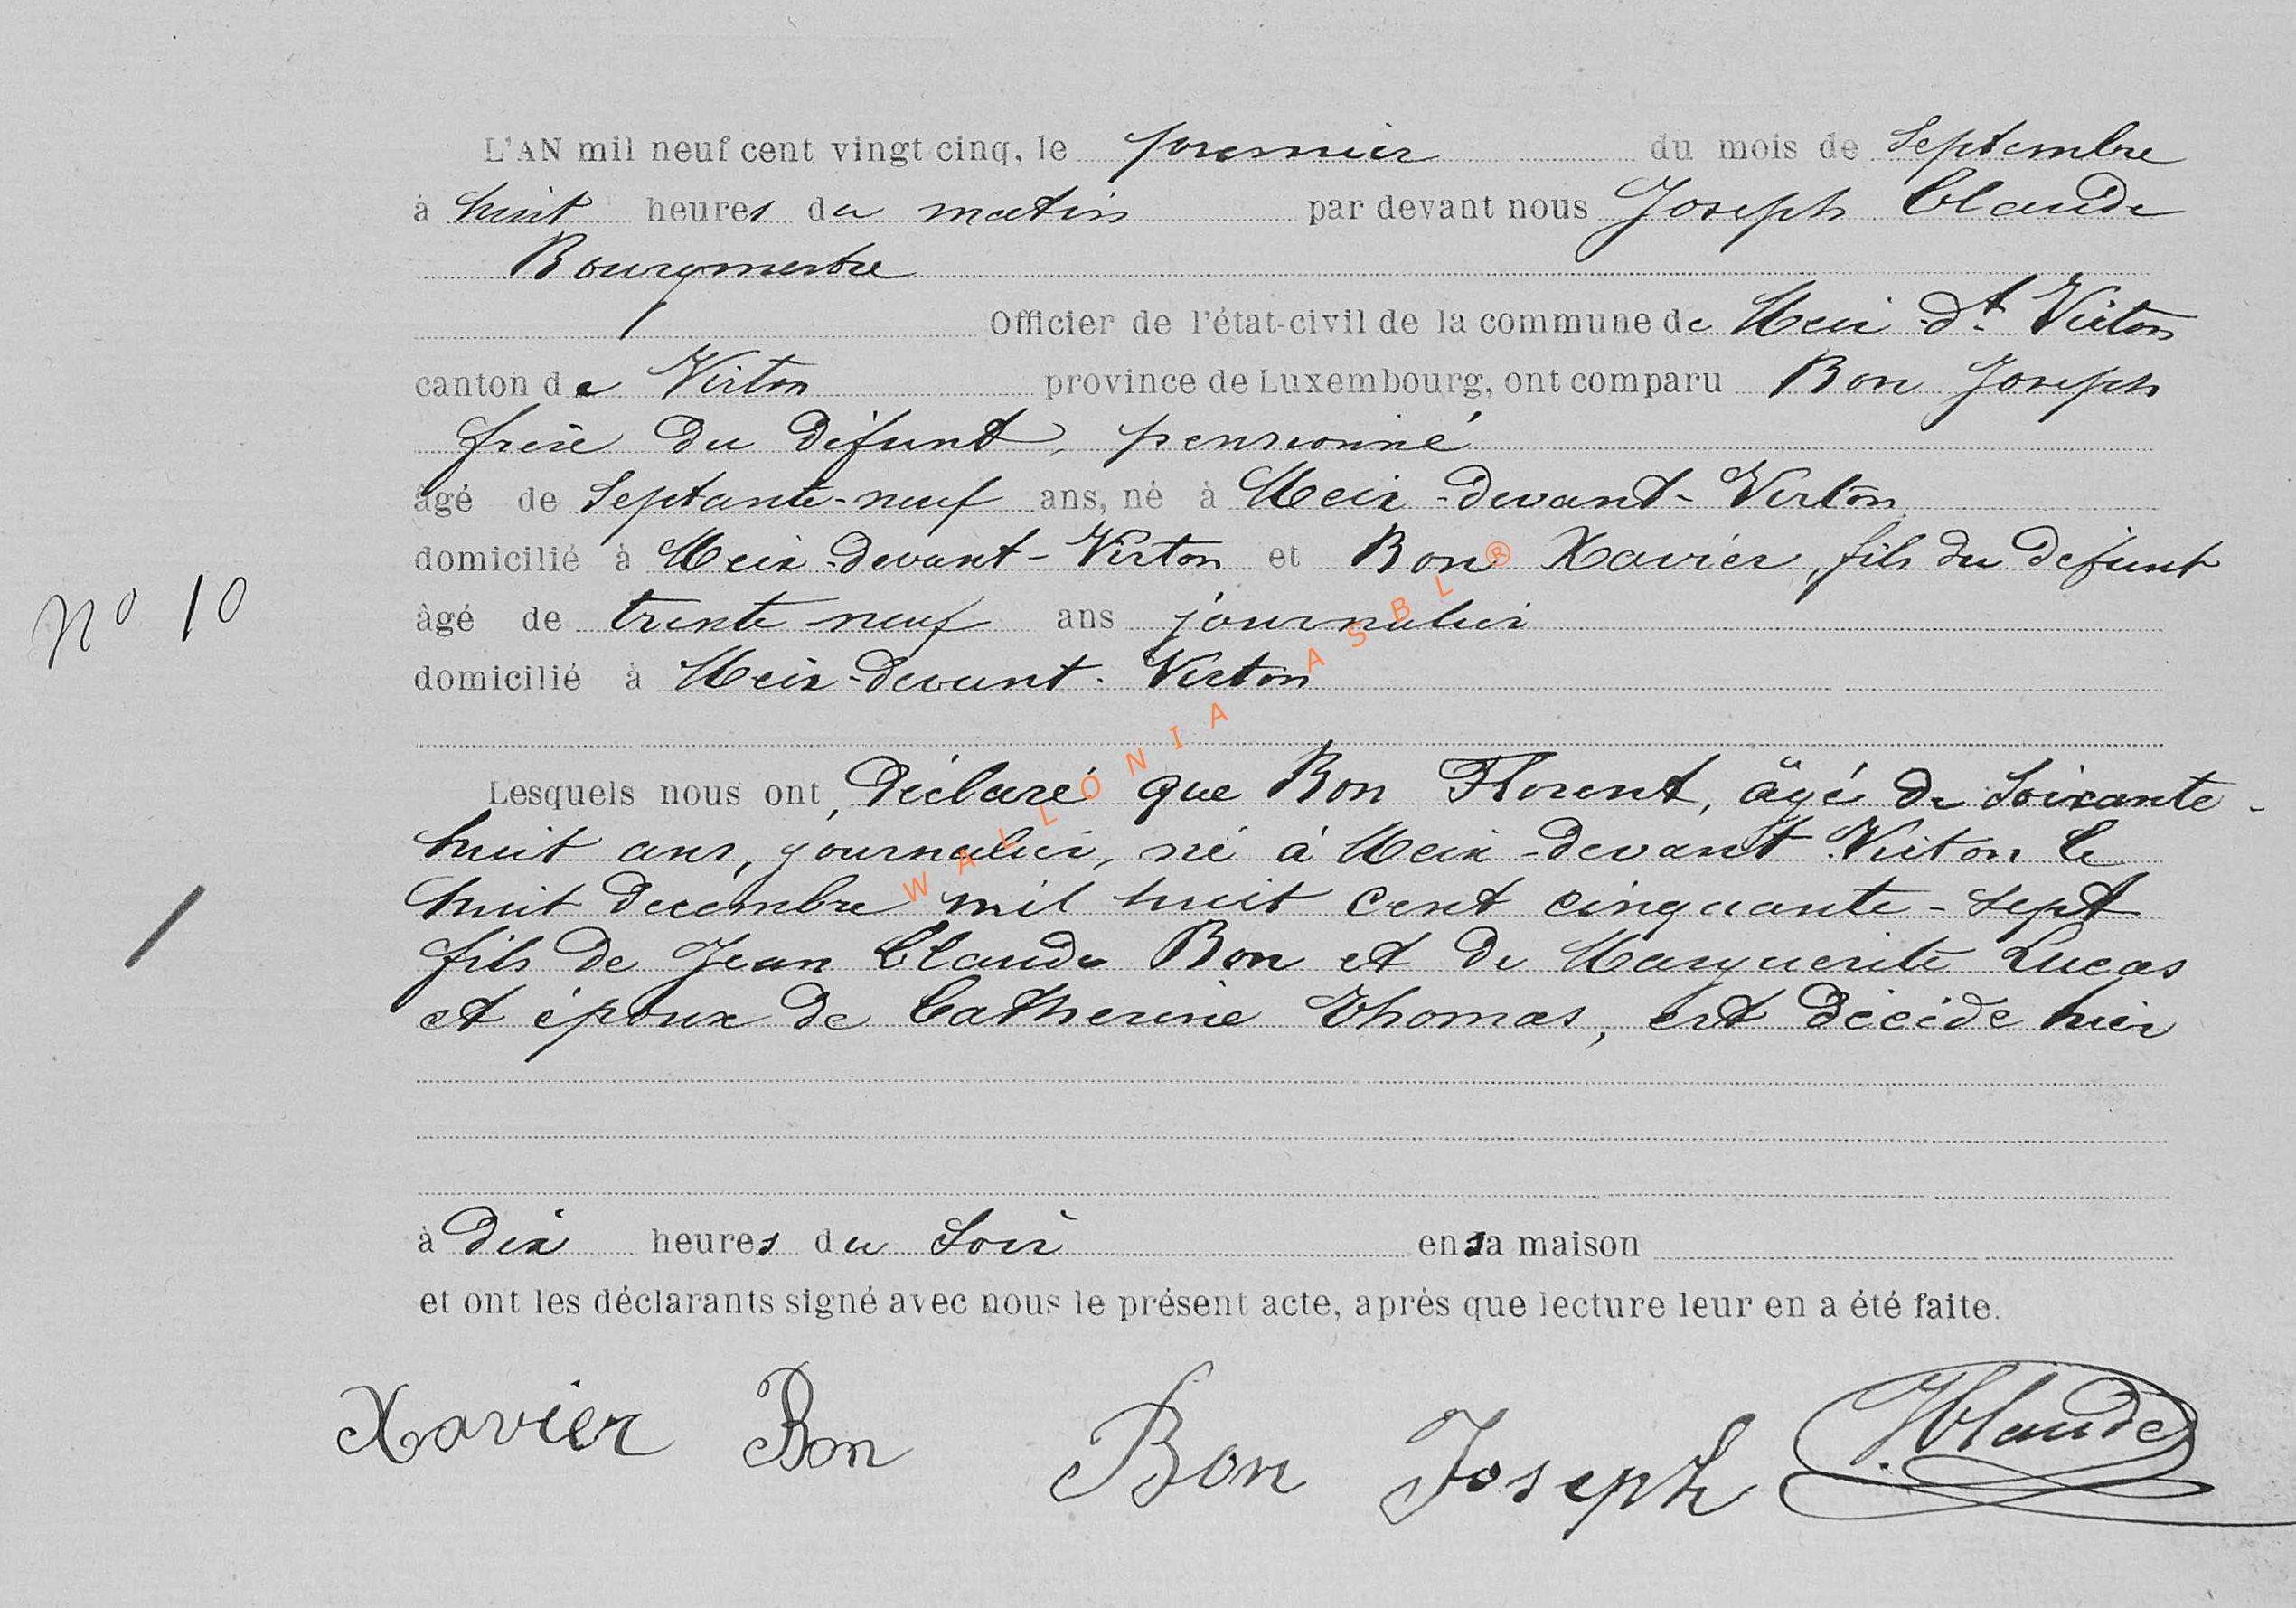 L'AN mil neuf cent vingt cinq, le premier du mois de Septembre
à huit heures du matin par devant nous Joseph Claude
Bourgmestre
Officier de l'état-civil de la commune de Meix-dt Virton
canton de Virton province de Luxembourg, ont comparu Bon Joseph
frère du défunt, pensionné
âgé de Septante-neuf ans, né à Meix-devant-Virton
domicilié à Meix-devant-Virton et Bon Xavier, fils du defunt
âgé de trente neuf ans journalier
N° 10
domicilié à Meix-devant-Virton
Lesquels nous ont déclaré que Bon Florent, âgé de Soixante-
huit ans, journalier, né à Meix-devant Virton le
huit décembre mil huit cent cinquante-sept
fils de Jean Claude Bon et de Marguerite Lucas
et époux de Catherine Thomas, est décédé hier
à dix heures du Soir en sa maison
et ont les déclarants signé avec nous le présent acte, après que lecture leur en a été faite.
Xavier Bon Bon Joseph JClaude
WALLONIA ASBL ®